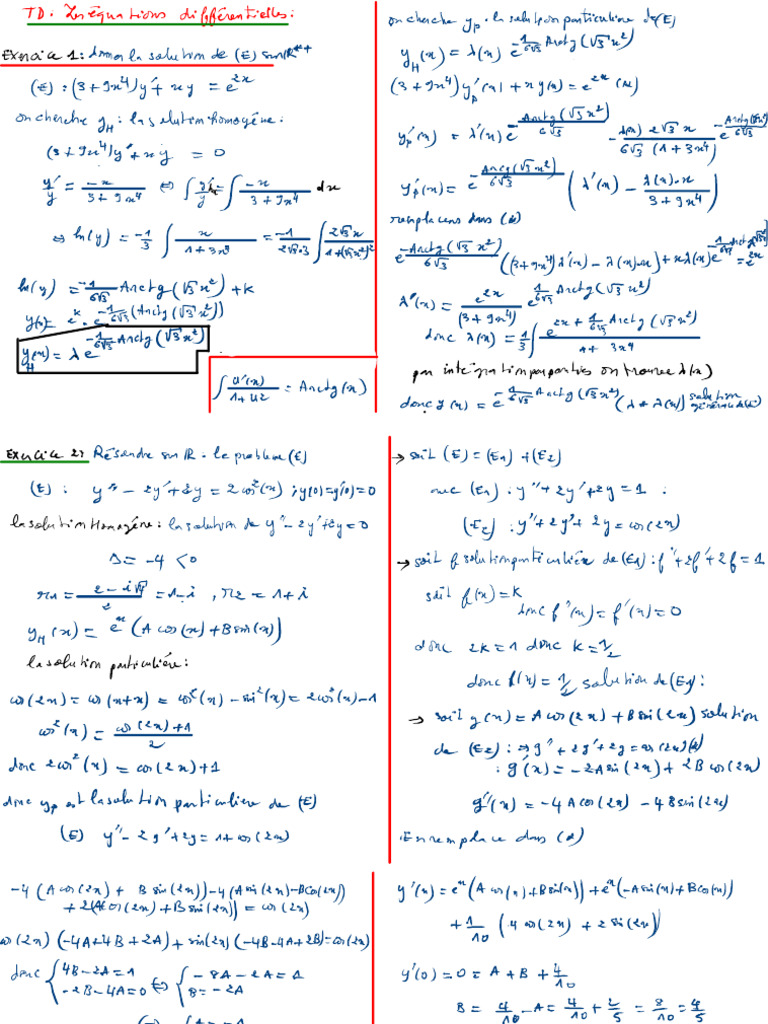 TD. Les équations différentielles:
Exercice 1: donner la solution de (E) sur ℝ*+
(E) : (3+9x⁴)y' + xy = e^{2x}
on cherche y_H : la solution homogène :
(3+9x⁴)y' + xy = 0
y'/y = -x/(3+9x⁴) ⇔ ∫ y'/y = ∫ -x/(3+9x⁴) dx
⇔ ln(y) = -1/3 ∫ x/(1+3x⁴) = -1/(2√3·3) ∫ 2√3x/(1+(√3x²)²)
ln(y) = -1/(6√3) Arctg(√3x²) + k
y(x) = e^k · e^{-1/(6√3) (Arctg(√3x²))}
y_H(x) = λ e^{-1/(6√3) Arctg(√3x²)}
∫ u'(x)/(1+u²) = Arctg(x)
on cherche y_p · la solution particulière de (E)
y_H(x) = λ(x) e^{-1/(6√3) Arctg(√3x²)}
(3+9x⁴)y'_p(x) + xy(x) = e^{2x} (*)
y'_p(x) = λ'(x) e^{-Arctg(√3x²)/(6√3)} - λ(x) 2√3x/(6√3(1+3x⁴)) e^{-Arctg(√3x²)/(6√3)}
y'_p(x) = e^{-Arctg(√3x²)/(6√3)} (λ'(x) - λ(x)·x/(3+9x⁴))
remplaçons dans (*)
e^{-Arctg(√3x²)/(6√3)} ((3+9x⁴)λ'(x) - λ(x)·x) + xλ(x) e^{-1/(6√3) Arctg(√3x²)} = e^{2x}
λ'(x) = e^{2x}/(3+9x⁴) e^{1/(6√3) Arctg(√3x²)}
donc λ(x) = 1/3 ∫ e^{2x + 1/(6√3) Arctg(√3x²)}/(1+3x⁴)
par intégration par parties on trouve λ(x)
donc y(x) = e^{-1/(6√3) Arctg(√3x²)} (λ + λ(x)) solution générale de (E)
Exercice 2: Résoudre sur ℝ : le problème (E)
(E) : y'' - 2y' + 2y = 2cos²(x) ; y(0) = y'(0) = 0
la solution Homogène : la solution de y'' - 2y' + 2y = 0
Δ = -4 < 0
r₁ = (2 - i√4)/2 = 1-i , r₂ = 1+i
y_H(x) = e^x (A cos(x) + B sin(x))
la solution particulière :
cos(2x) = cos(x+x) = cos²(x) - sin²(x) = 2cos²(x) - 1
cos²(x) = (cos(2x)+1)/2
donc 2cos²(x) = cos(2x) + 1
donc y_p est la solution particulière de (E)
(E) y'' - 2y' + 2y = 1 + cos(2x)
→ soit (E) = (E1) + (E2)
avec (E1) : y'' + 2y' + 2y = 1 :
(E2) : y'' + 2y' + 2y = cos(2x)
→ soit f solution particulière de (E1) : f'' + 2f' + 2f = 1
soit f(x) = k
donc f''(x) = f'(x) = 0
donc 2k = 1 donc k = 1/2
donc f(x) = 1/2 solution de (E1) :
→ soit g(x) = A cos(2x) + B sin(2x) solution
de (E2) : ⇒ g'' + 2g' + 2g = cos(2x) (*)
: g'(x) = -2A sin(2x) + 2B cos(2x)
g''(x) = -4A cos(2x) - 4B sin(2x)
En remplace dans (*)
-4 (A cos(2x) + B sin(2x)) - 4(A sin(2x) - B cos(2x))
+ 2(A cos(2x) + B sin(2x)) = cos(2x)
cos(2x) (-4A + 4B + 2A) + sin(2x) (-4B - 4A + 2B) = cos(2x)
donc { 4B - 2A = 1 ⇔ { -8A - 2A = 1
-2B - 4A = 0 B = -2A
y'(x) = e^x (A cos(x) + B sin(x)) + e^x (-A sin(x) + B cos(x))
+ 1/10 (4 cos(2x) + 2 sin(2x))
y'(0) = 0 = A + B + 4/10
B = 4/10 - A = 4/10 + 2/5 = 8/10 = 4/5